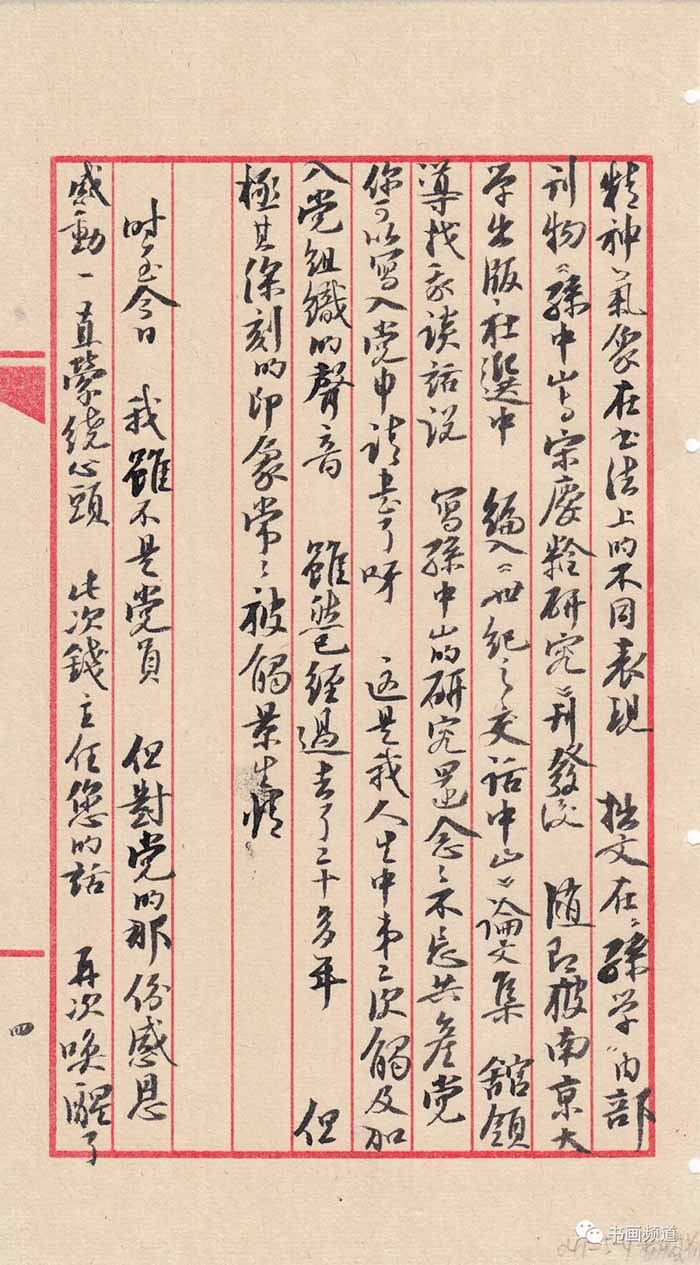 精神、氣象在书法上的不同表現 拙文在“孫学”内部
刊物《孫中山与宋慶齡研究》刊發後 随即被南京大
学出版社選中 编入《世纪之交话中山》論文集 舘領
導找我谈話说 寫孫中山的研究還念念不忘共產党
你可以寫入党申请書了呀 这是我人生中第二次觸及加
入党组織的聲音 雖然已經過去了二十多年 但
極其深刻的印象常常被觸景生情
时至今日 我雖不是党員 但對党的那份感恩
感動一直縈绕心頭 此次錢主任您的話 再次唤醒了
四
书画频道